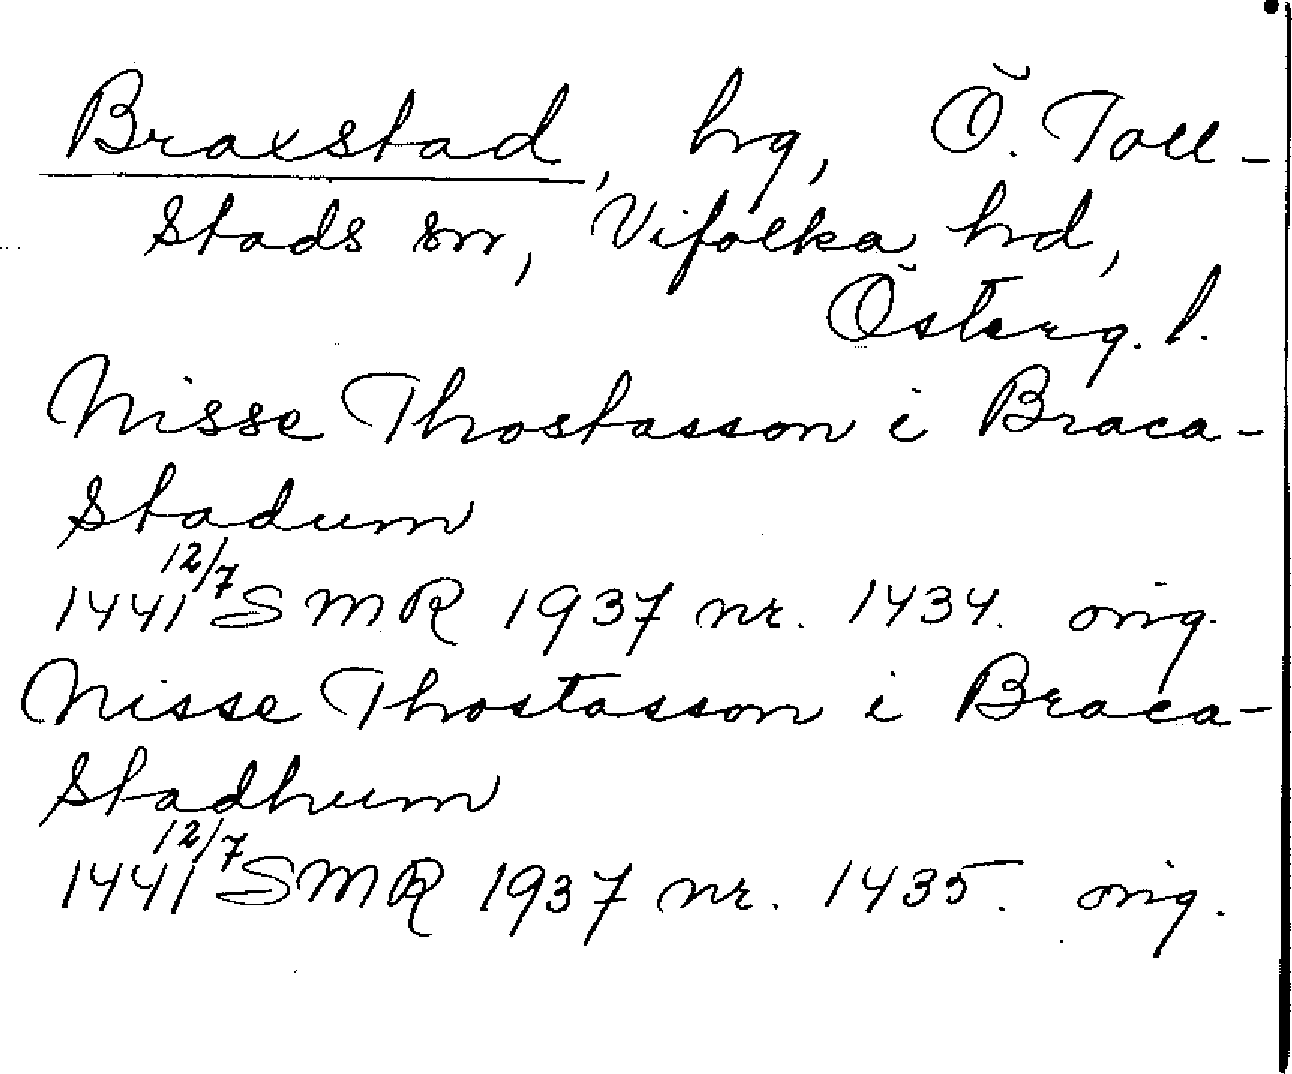 Braxstad, hg, Ö. Toll-
stads sn, Vifolka hd,
Österg. l.
Nisse Thostasson i Braca-
stadum
1441 12/7 SMR 1937 nr. 1434. orig.
Nisse Thostasson i Braca-
stadhum
1441 12/7 SMR 1937 nr. 1435. orig.